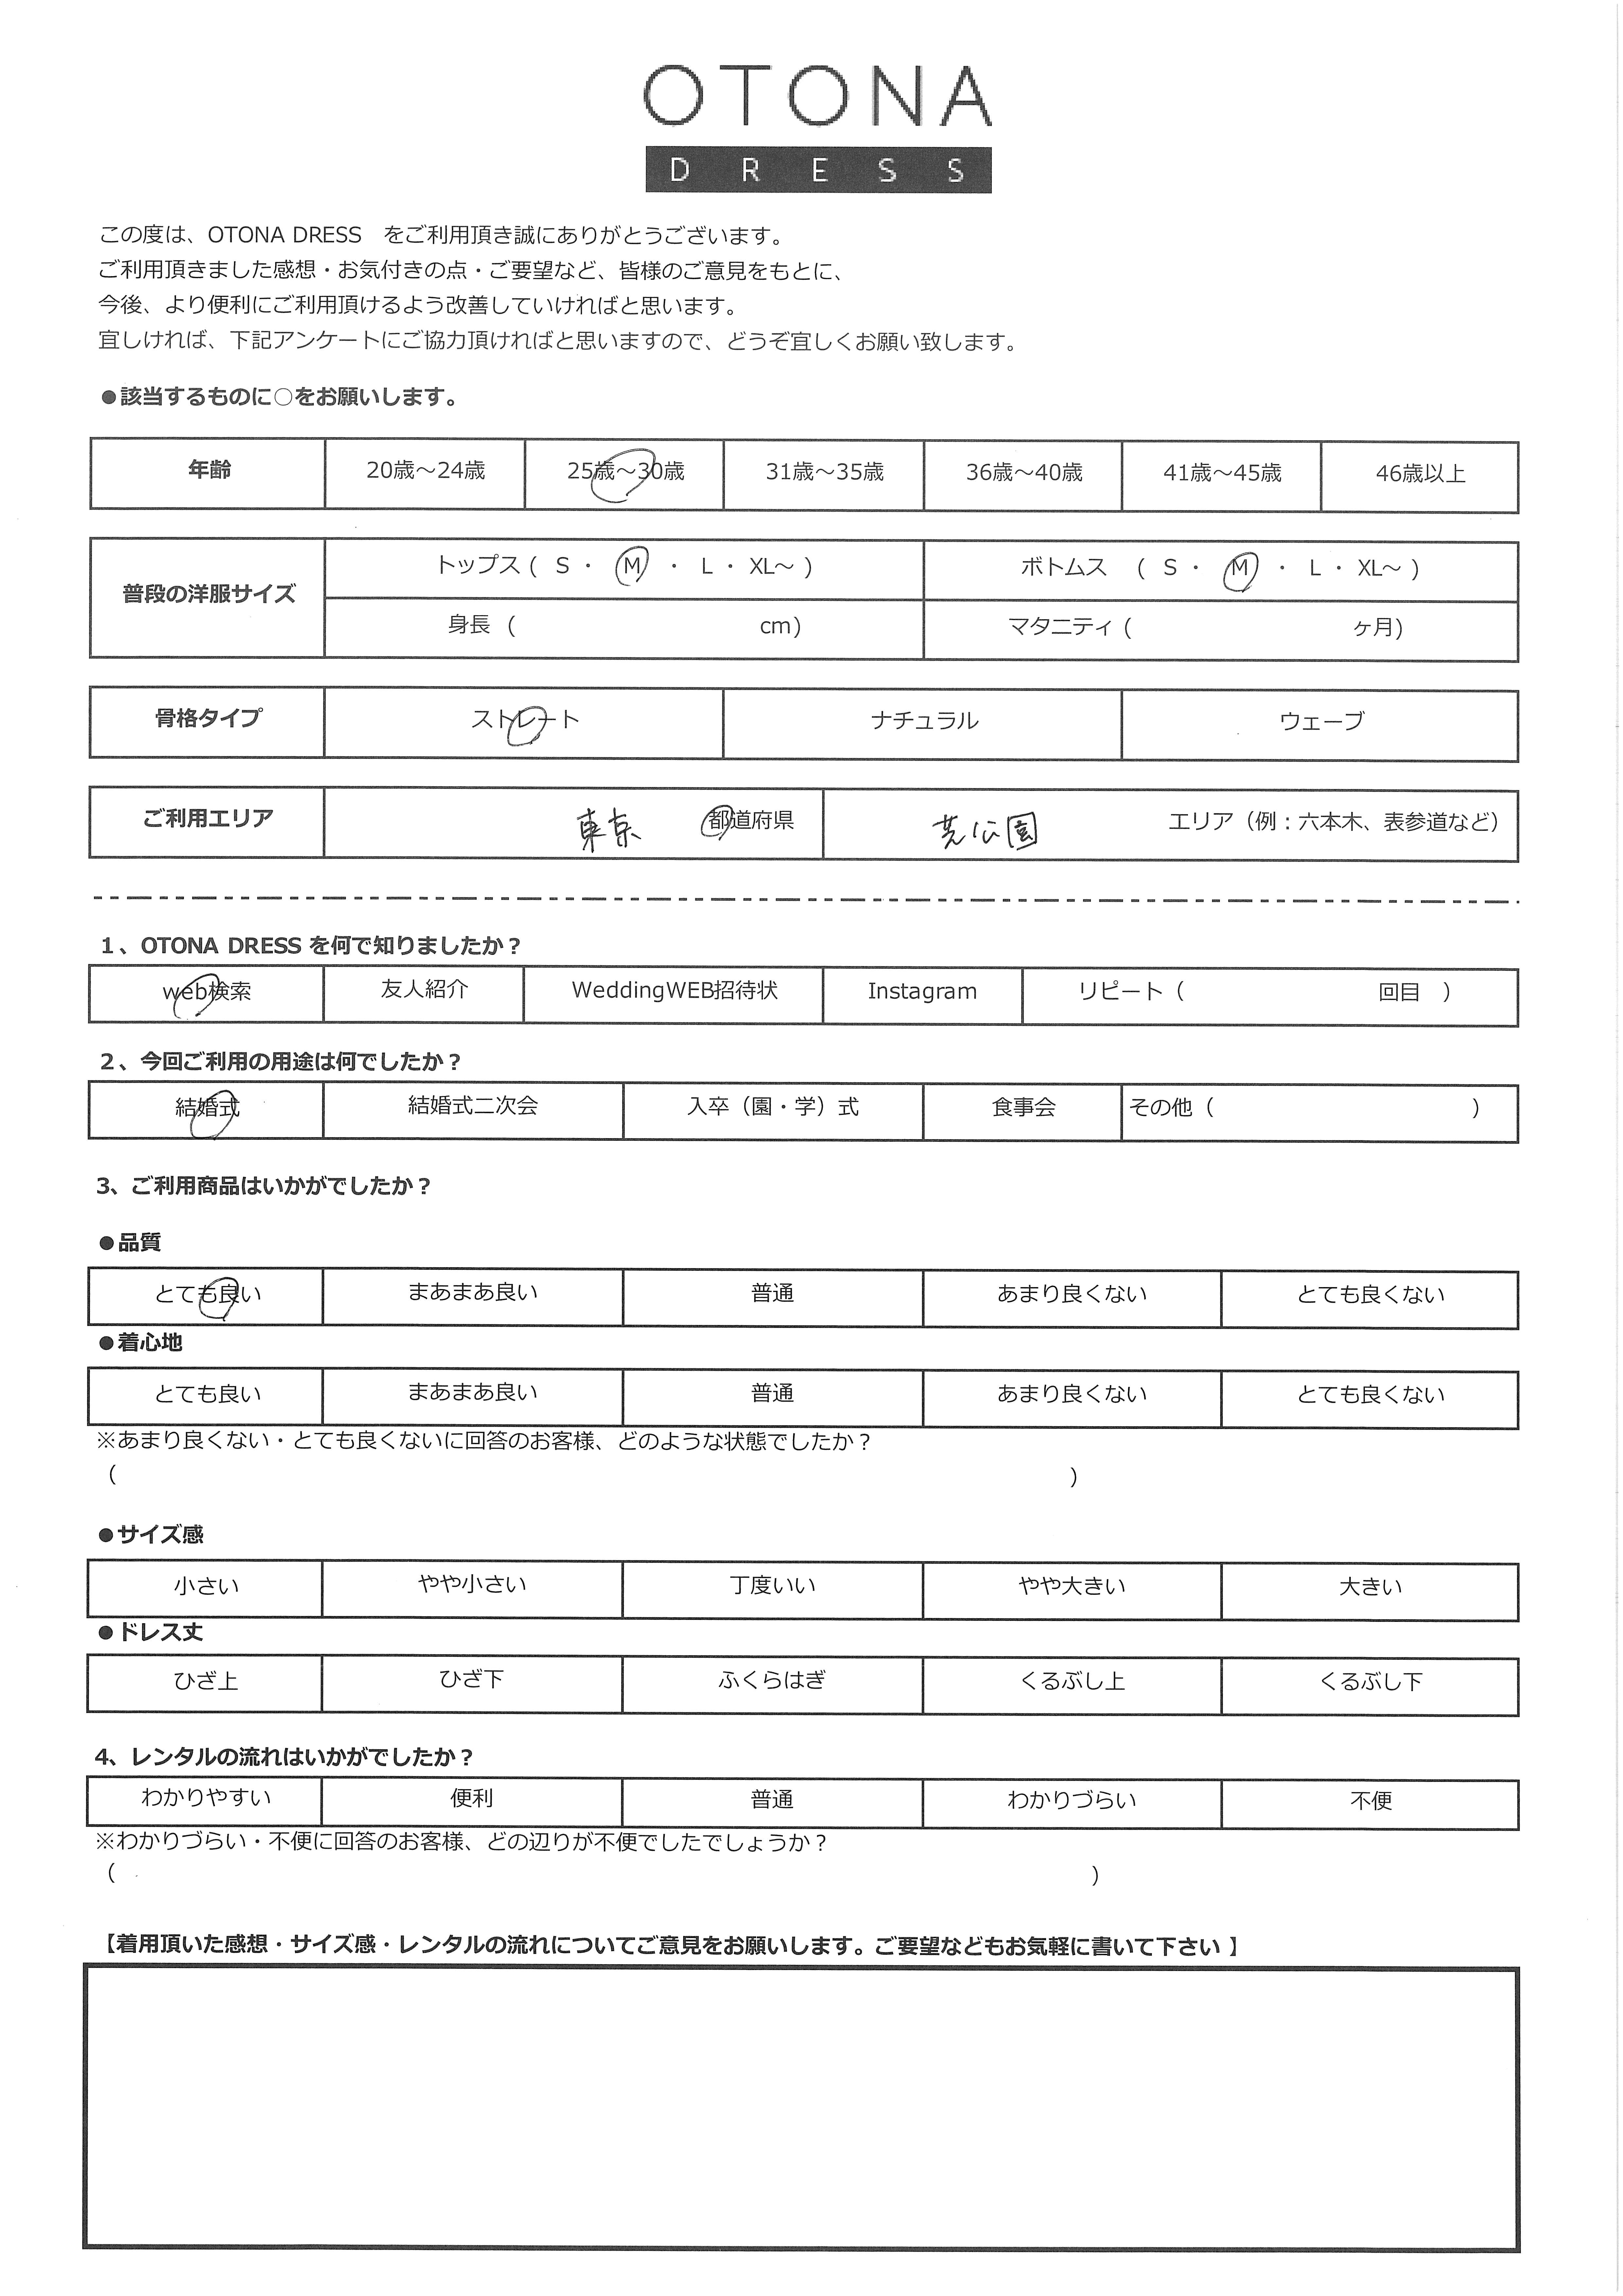 OTONA
DRESS
この度は、OTONA DRESS　をご利用頂き誠にありがとうございます。
ご利用頂きました感想・お気付きの点・ご要望など、皆様のご意見をもとに、
今後、より便利にご利用頂けるよう改善していければと思います。
宜しければ、下記アンケートにご協力頂ければと思いますので、どうぞ宜しくお願い致します。
●該当するものに○をお願いします。
年齢 20歳～24歳 25歳～30歳 31歳～35歳 36歳～40歳 41歳～45歳 46歳以上
普段の洋服サイズ トップス ( S ・ M ・ L ・ XL～ ) ボトムス ( S ・ M ・ L ・ XL～ )
身長 ( cm) マタニティ ( ヶ月)
骨格タイプ ストレート ナチュラル ウェーブ
ご利用エリア 東京 都道府県 芝公園 エリア（例：六本木、表参道など）
1、OTONA DRESS を何で知りましたか？
web検索 友人紹介 WeddingWEB招待状 Instagram リピート（ 回目 ）
2、今回ご利用の用途は何でしたか？
結婚式 結婚式二次会 入卒（園・学）式 食事会 その他（ ）
3、ご利用商品はいかがでしたか？
●品質
とても良い まあまあ良い 普通 あまり良くない とても良くない
●着心地
とても良い まあまあ良い 普通 あまり良くない とても良くない
※あまり良くない・とても良くないに回答のお客様、どのような状態でしたか？
（ ）
●サイズ感
小さい やや小さい 丁度いい やや大きい 大きい
●ドレス丈
ひざ上 ひざ下 ふくらはぎ くるぶし上 くるぶし下
4、レンタルの流れはいかがでしたか？
わかりやすい 便利 普通 わかりづらい 不便
※わかりづらい・不便に回答のお客様、どの辺りが不便でしたでしょうか？
（ ）
【着用頂いた感想・サイズ感・レンタルの流れについてご意見をお願いします。ご要望などもお気軽に書いて下さい 】